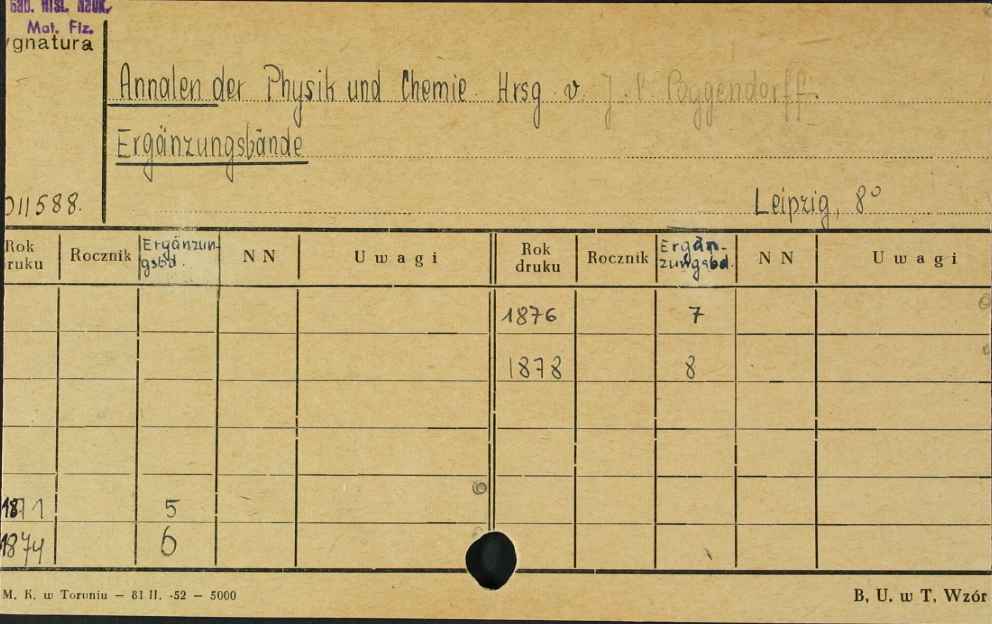 Gab. Hist. Nauk,
Mat. Fiz.
ygnatura
Annalen der Physik und Chemie. Hrsg. v. J. C. Poggendorff.
Ergänzungsbände
011588.
Leipzig, 8°
Rok druku Rocznik Ergänzungsbd. N N Uwagi Rok druku Rocznik Ergänzungsbd. N N Uwagi
1876 7
1878 8
1871 5
1874 6
M. K. w Toruniu — 81 II. -52 — 5000
B, U. w T, Wzór